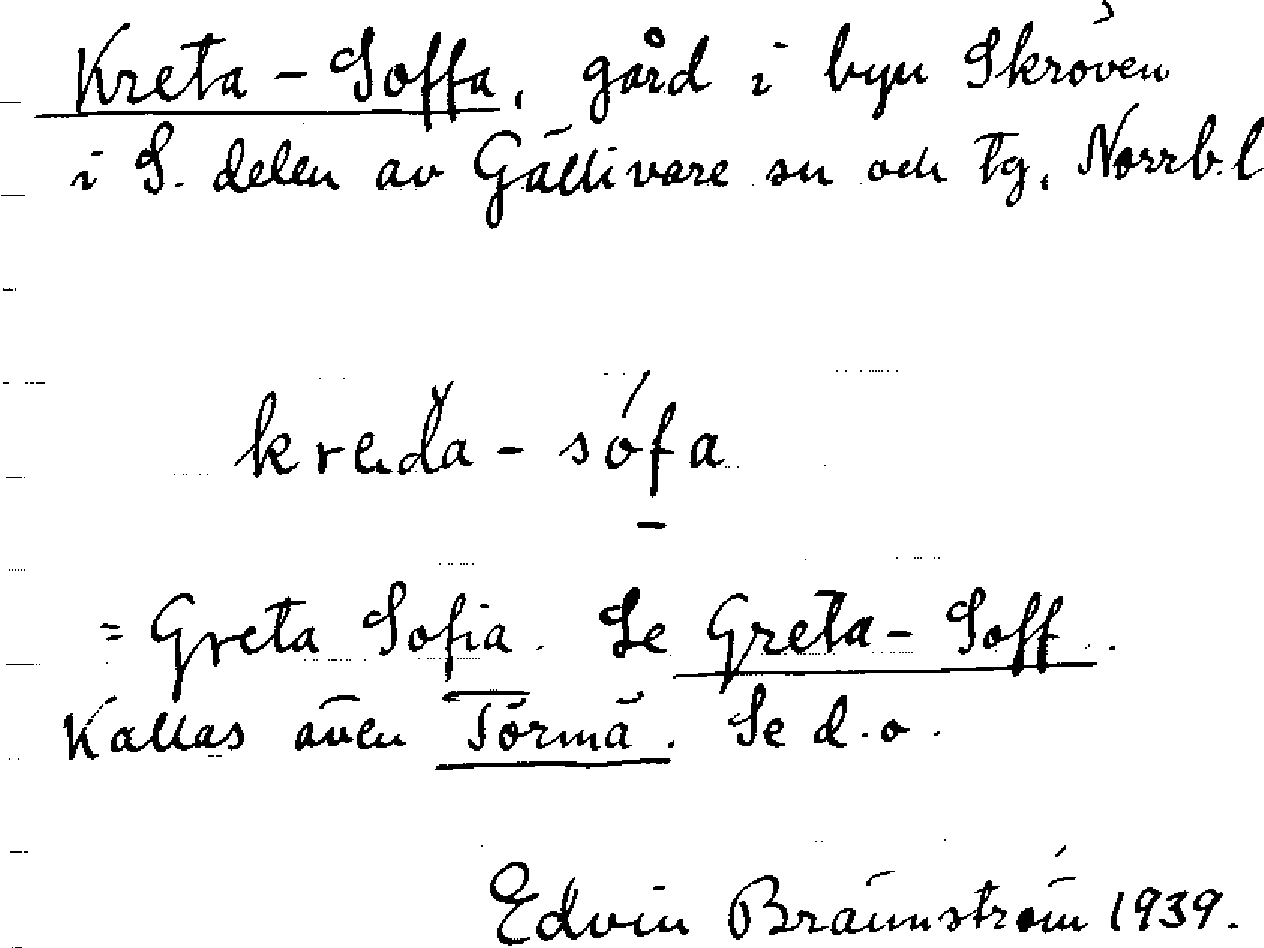 Kreta-Soffa, gård i byn Skröven
i S. delen av Gällivare sn och tg, Norrb.l
-sófa
= Greta Sofia. Se Greta-Soff.
Kallas även Törmä. Se d.o.
Edwin Brännström 1939.